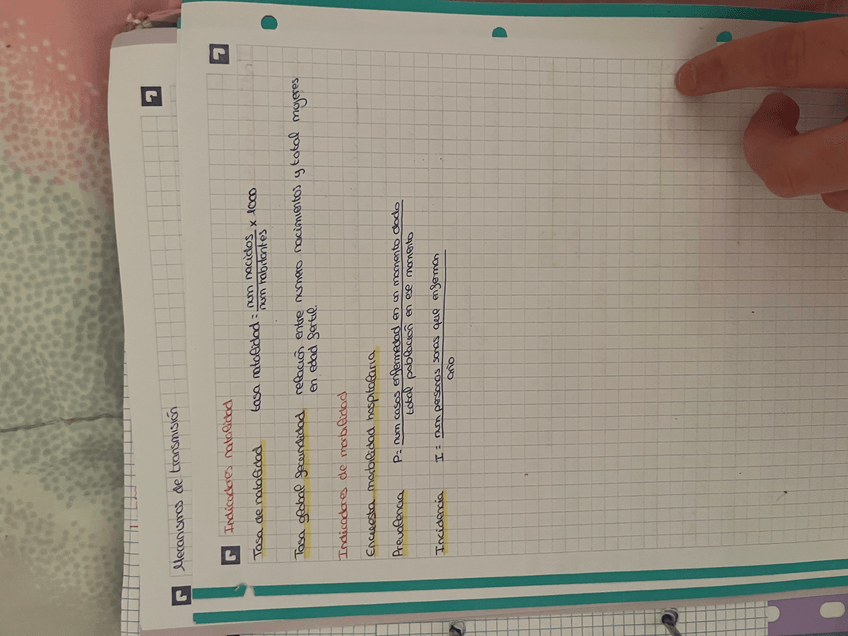 Mecanismos de transmisión
Indicadores natalidad
Tasa de natalidad tasa natalidad = num nacidos / num habitantes x 1000
Tasa global fecundidad relación entre numero nacimientos y total mujeres
en edad fertil.
Indicadores de morbilidad
Encuesta morbilidad hospitalaria
Prevalencia P = num casos enfermedad en un momento dado / total población en ese momento
Incidencia I = num personas sanas que enferman / año